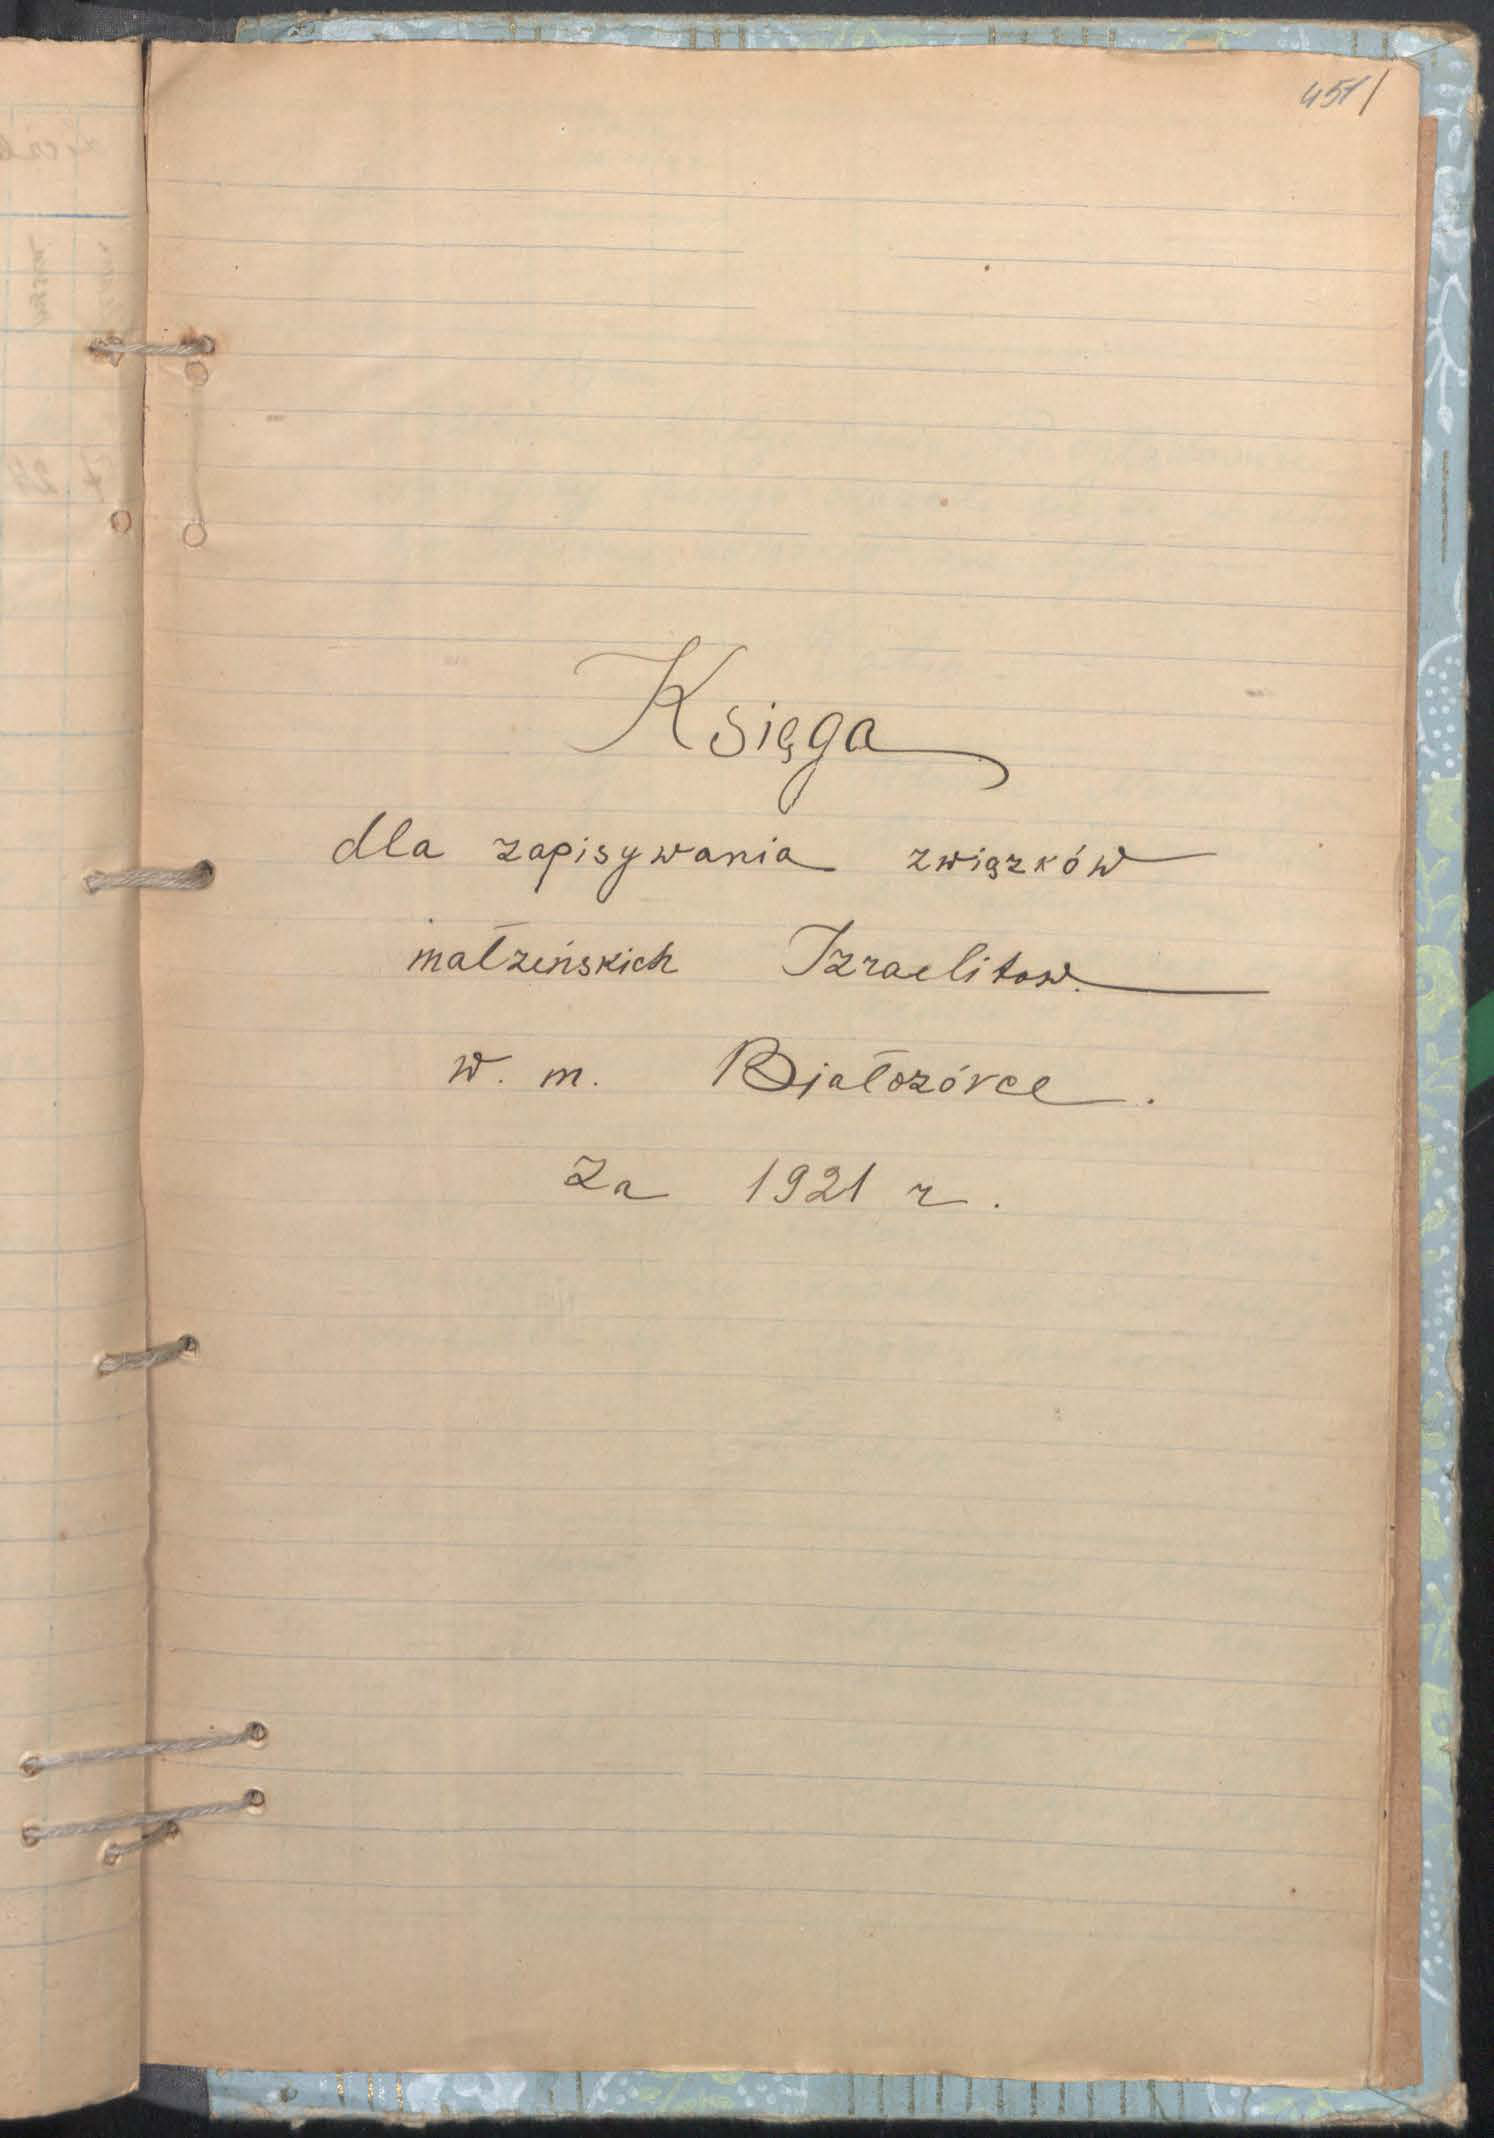 451
Księga
dla zapisywania związków
małżeńskich Izraelitow
w. m. Białozórce.
Za 1921 r.